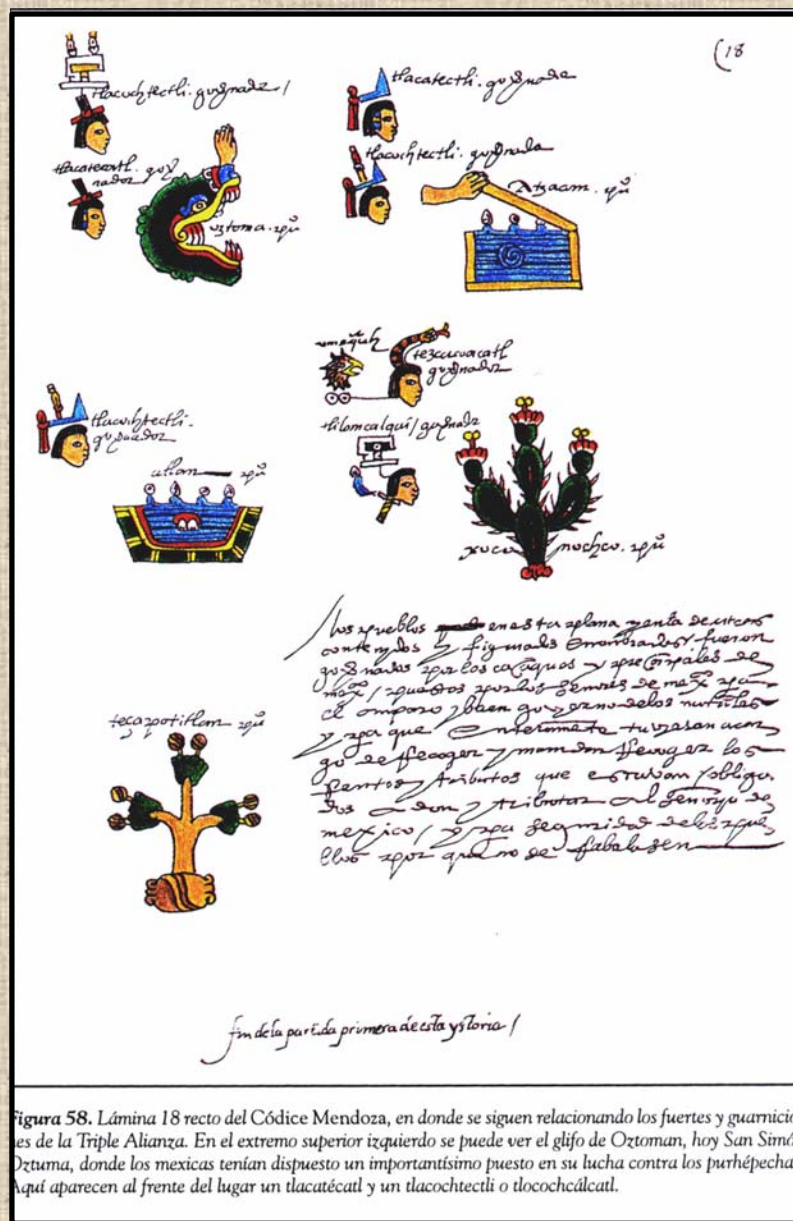 (18
tlacochtectli. govnador /
tlacatectli. govnador
tlacatecatl. gov
nador
tlacochtectli. govnador
oztoma. pu͞o
Atzacan. pu͞o
tezcacoacatl
governador
tlacochtectli.
governador
tlilancalqui / governador
atlan pu͞o
xoco nochco. pu͞o
los pueblos en esta plana y en la de atras
contenydos y figurados E nonbrados, fueron
governados por los caçiques y prençipales de
mex͞co / puestos por los señores de mex͞co pa
el anparo y buen governo de los naturales
y pa que enteramente tuviesen car
go de Recoger y mandar Recoger los
Rentos y tributos que estavan obliga
dos a dar y tributar al señorio de
mexico / y pa seguridad de los pue
blos por que no se
teçapotitlan pu͞o
fin de la partida primera de esta ystoria /
Figura 58. Lámina 18 recto del Códice Mendoza, en donde se siguen relacionando los fuertes y guarnicio
nes de la Triple Alianza. En el extremo superior izquierdo se puede ver el glifo de Oztoman, hoy San Simó
Oztuma, donde los mexicas tenían dispuesto un importantísimo puesto en su lucha contra los purhépecha
Aquí aparecen al frente del lugar un tlacatécatl y un tlacochtectli o tlocochcálcatl.